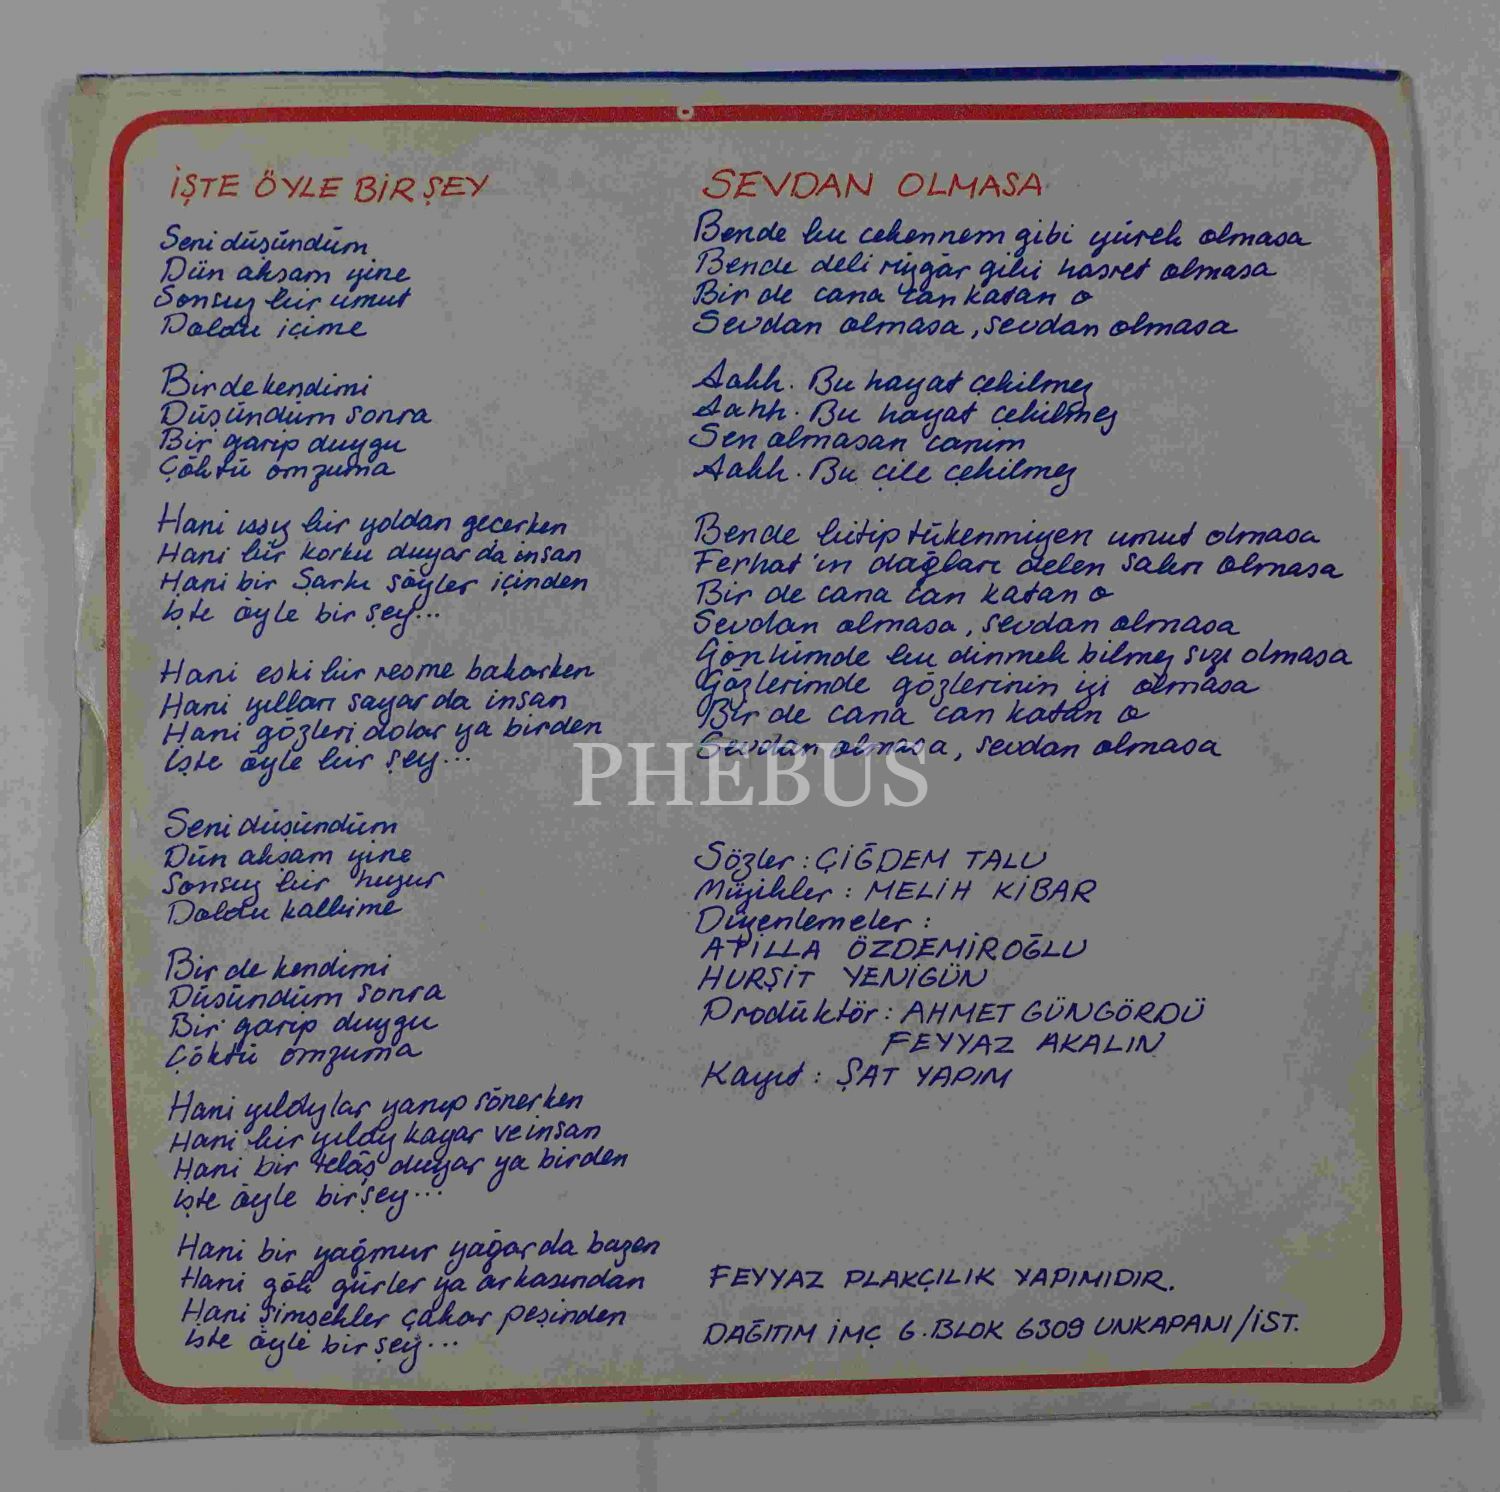 İŞTE ÖYLE BİR ŞEY
Seni düşündüm
Dün akşam yine
Sonsuz bir umut
Doldu içime
Bir de kendimi
Düşündüm sonra
Bir garip duygu
Çöktü omzuma
Hani ıssız bir yoldan geçerken
Hani bir korku duyar da insan
Hani bir Şarkı söyler içinden
işte öyle bir şey...
Hani eski bir resme bakarken
Hani yılları sayar da insan
Hani gözleri dolar ya birden
işte öyle bir şey...
Seni düşündüm
Dün akşam yine
Sonsuz bir huzur
Doldu kalbime
Bir de kendimi
Düşündüm sonra
Bir garip duygu
Çöktü omzuma
Hani yıldızlar yanıp sönerken
Hani bir yıldız kayar ve insan
Hani bir telaş duyar ya birden
işte öyle bir şey...
Hani bir yağmur yağar da bazen
Hani gök gürler ya arkasından
Hani şimşekler çakar peşinden
işte öyle bir şey...
SEVDAN OLMASA
Bende bu cehennem gibi yürek olmasa
Bende deli rüzgâr gibi hasret olmasa
Bir de cana can katan o
Sevdan olmasa, sevdan olmasa
Aahh. Bu hayat çekilmez
Aahh. Bu hayat çekilmez
Sen olmasan canım
Aahh. Bu çile çekilmez
Bende bitip tükenmiyen umut olmasa
Ferhat'ın dağları delen sabrı olmasa
Bir de cana can katan o
Sevdan olmasa, sevdan olmasa
Gönlümde bu dinmek bilmez sızı olmasa
Gözlerimde gözlerinin izi olmasa
Bir de cana can katan o
Sevdan olmasa, sevdan olmasa
PHEBUS
Sözler : ÇİĞDEM TALU
Müzikler : MELİH KİBAR
Düzenlemeler :
ATİLLA ÖZDEMİROĞLU
HURŞİT YENİGÜN
Prodüktör : AHMET GÜNGÖRDÜ
FEYYAZ AKALIN
Kayıt : ŞAT YAPIM
FEYYAZ PLAKÇILIK YAPIMIDIR.
DAĞITIM İMÇ 6. BLOK 6309 UNKAPANI/İST.